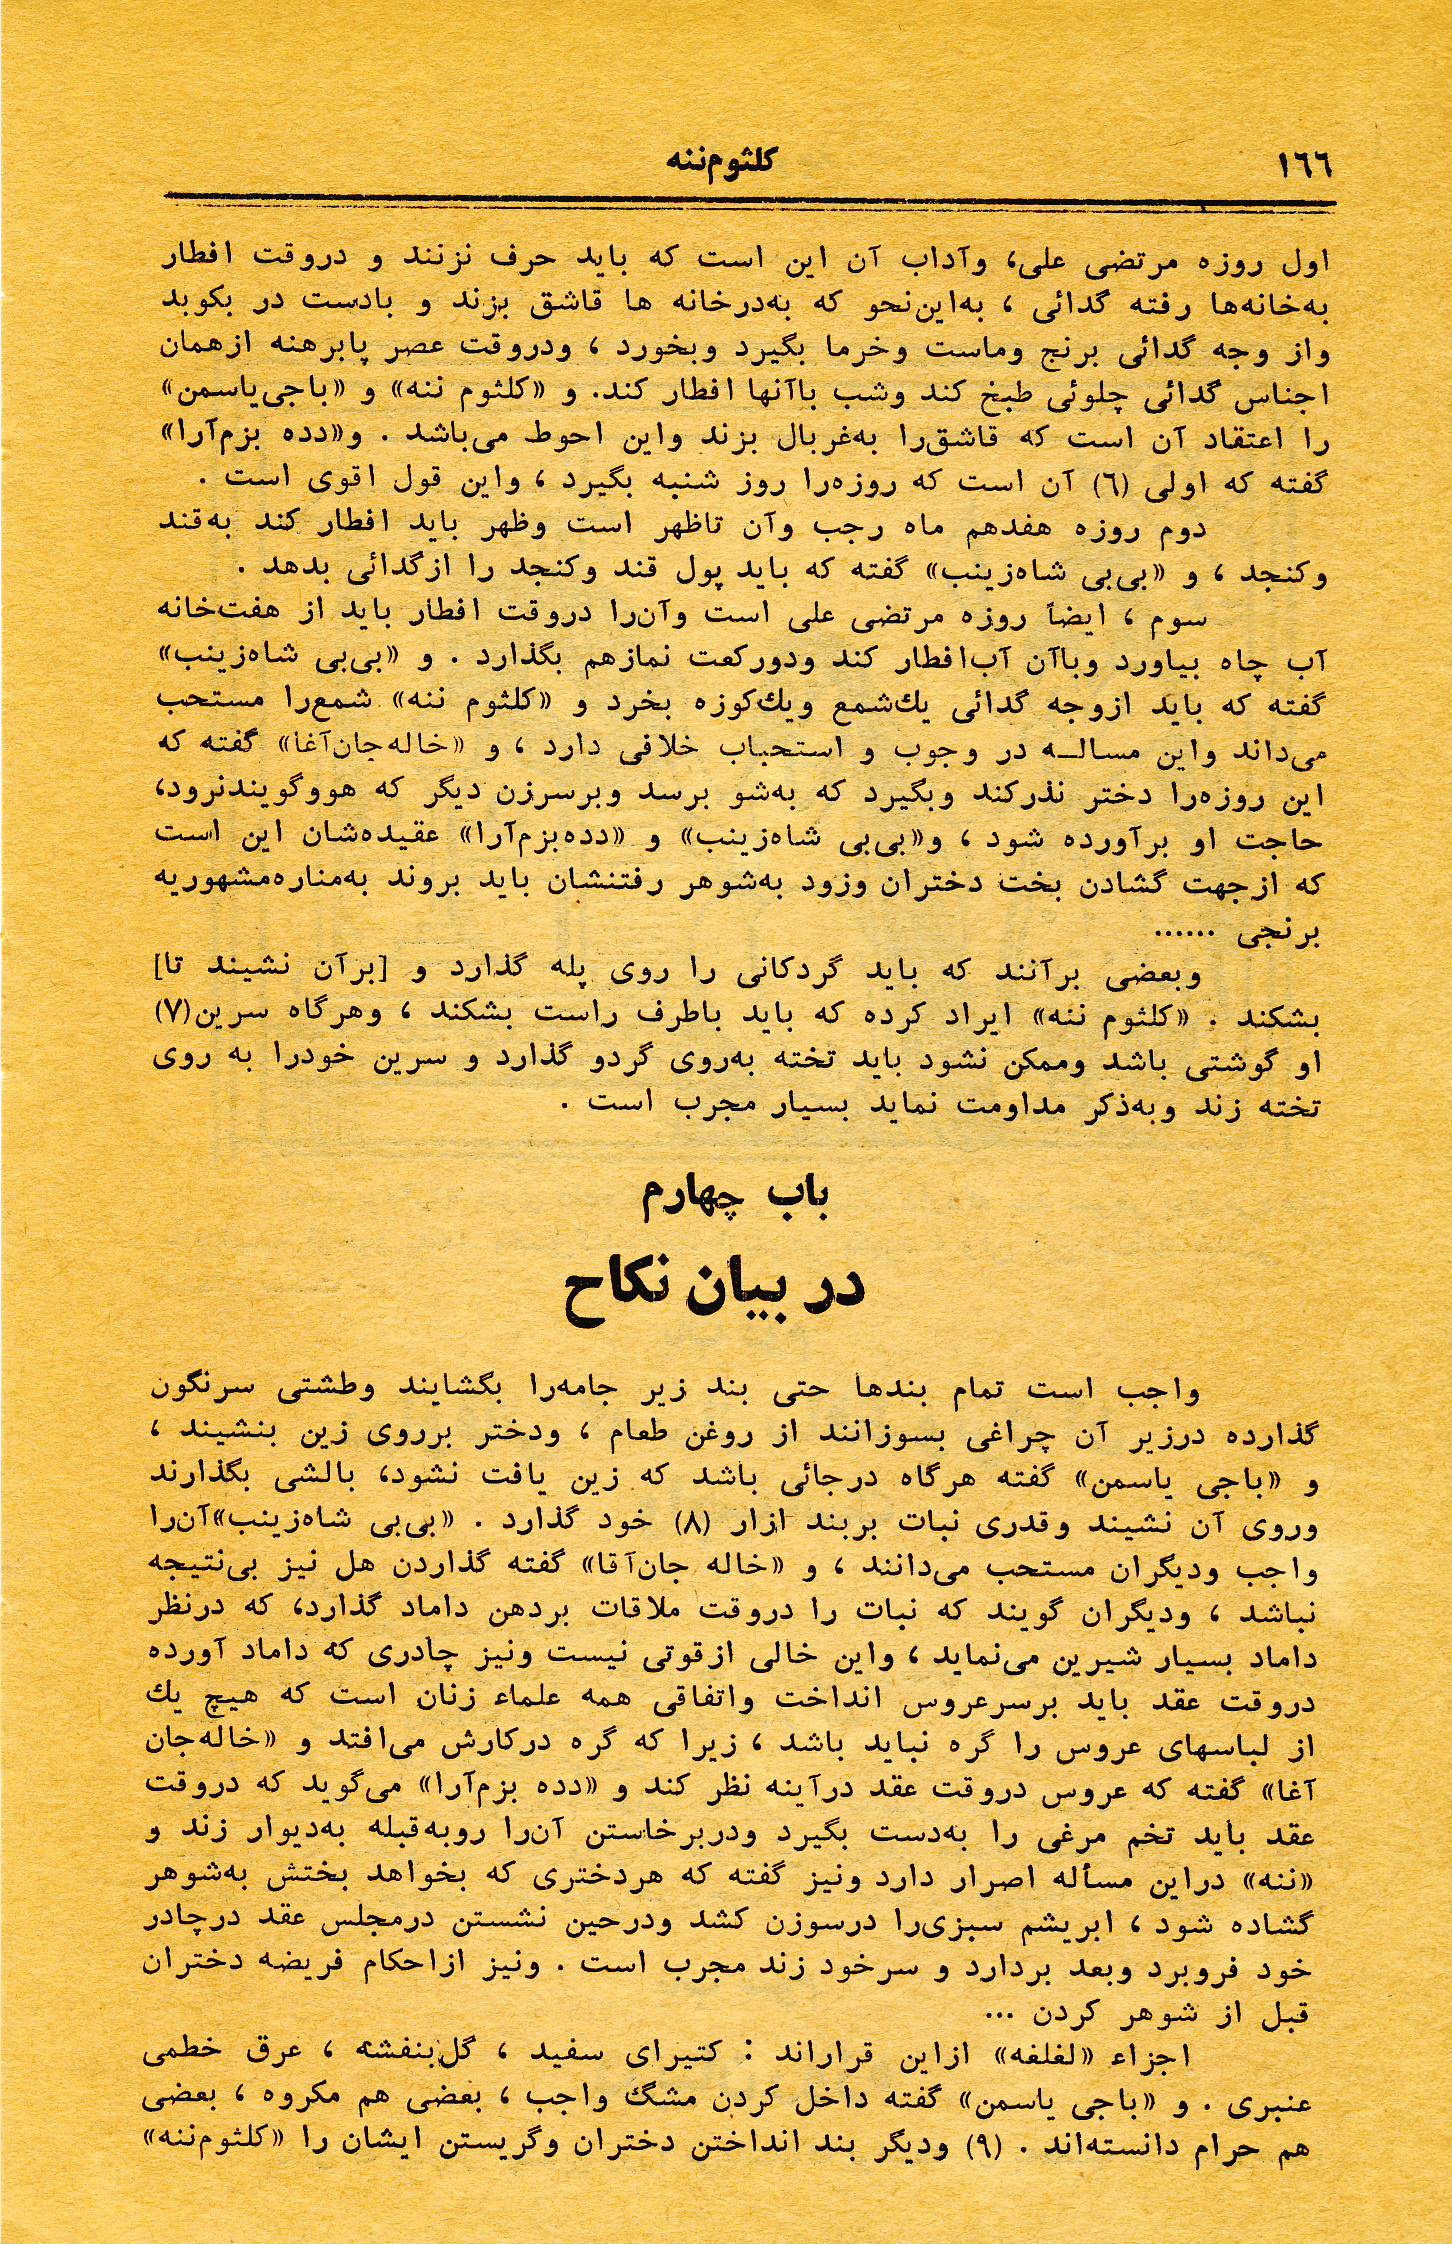 ١٦٦
کلثوم‌ننه
اول روزه مرتضی علی، وآداب آن این است که باید حرف نزنند و دروقت افطار
به‌خانه‌ها رفته گدائی ، به‌این‌نحو که به‌درخانه ها قاشق بزند و بادست در بکوبد
واز وجه گدائی برنج وماست وخرما بگیرد وبخورد ، ودروقت عصر پابرهنه ازهمان
اجناس گدائی چلوئی طبخ کند وشب باآنها افطار کند. و «کلثوم ننه» و «باجی‌یاسمن»
را اعتقاد آن است که قاشق‌را به‌غربال بزند واین احوط می‌باشد . و«دده بزم‌آرا»
گفته که اولی (٦) آن است که روزه‌را روز شنبه بگیرد ، واین قول اقوی است .
دوم روزه هفدهم ماه رجب وآن تاظهر است وظهر باید افطار کند به‌قند
وکنجد ، و «بی‌بی شاه‌زینب» گفته که باید پول قند وکنجد را ازگدائی بدهد .
سوم ، ایضاً روزه مرتضی علی است وآن‌را دروقت افطار باید از هفت‌خانه
آب چاه بیاورد وباآن آب‌افطار کند ودورکعت نمازهم بگذارد . و «بی‌بی شاه‌زینب»
گفته که باید ازوجه گدائی یك‌شمع ویك‌کوزه بخرد و «کلثوم ننه» شمع‌را مستحب
می‌داند واین مسالـه در وجوب و استحباب خلافی دارد ، و «خاله‌جان‌آغا» گفته که
این روزه‌را دختر نذرکند وبگیرد که به‌شو برسد وبرسرزن دیگر که هووگویندنرود،
حاجت او برآورده شود ، و«بی‌بی شاه‌زینب» و «دده‌بزم‌آرا» عقیده‌شان این است
که ازجهت گشادن بخت دختران وزود به‌شوهر رفتنشان باید بروند به‌مناره‌مشهوربه
برنجی ......
وبعضی برآنند که باید گردکانی را روی پله گذارد و [برآن نشیند تا]
بشکند . «کلثوم ننه» ایراد کرده که باید باطرف راست بشکند ، وهرگاه سرین(٧)
او گوشتی باشد وممکن نشود باید تخته به‌روی گردو گذارد و سرین خودرا به روی
تخته زند وبه‌ذکر مداومت نماید بسیار مجرب است .
باب چهارم
در بیان نکاح
واجب است تمام بندها حتی بند زیر جامه‌را بگشایند وطشتی سرنگون
گذارده درزیر آن چراغی بسوزانند از روغن طعام ، ودختر برروی زین بنشیند ،
و «باجی یاسمن» گفته هرگاه درجائی باشد که زین یافت نشود، بالشی بگذارند
وروی آن نشیند وقدری نبات بربند ازار (٨) خود گذارد . «بی‌بی شاه‌زینب»آن‌را
واجب ودیگران مستحب می‌دانند ، و «خاله جان‌آقا» گفته گذاردن هل نیز بی‌نتیجه
نباشد ، ودیگران گویند که نبات را دروقت ملاقات بردهن داماد گذارد، که درنظر
داماد بسیار شیرین می‌نماید ، واین خالی ازقوتی نیست ونیز چادری که داماد آورده
دروقت عقد باید برسرعروس انداخت واتفاقی همه علماء زنان است که هیچ یك
از لباسهای عروس را گره نباید باشد ، زیرا که گره درکارش می‌افتد و «خاله‌جان
آغا» گفته که عروس دروقت عقد درآینه نظر کند و «دده بزم‌آرا» می‌گوید که دروقت
عقد باید تخم مرغی را به‌دست بگیرد ودربرخاستن آن‌را روبه‌قبله به‌دیوار زند و
«ننه» دراین مسأله اصرار دارد ونیز گفته که هردختری که بخواهد بختش به‌شوهر
گشاده شود ، ابریشم سبزی‌را درسوزن کشد ودرحین نشستن درمجلس عقد درچادر
خود فروبرد وبعد بردارد و سرخود زند مجرب است . ونیز ازاحکام فریضه دختران
قبل از شوهر کردن ...
اجزاء «لغلغه» ازاین قراراند : کتیرای سفید ، گل‌بنفشه ، عرق خطمی
عنبری . و «باجی یاسمن» گفته داخل کردن مشگ واجب ، بعضی هم مکروه ، بعضی
هم حرام دانسته‌اند . (٩) ودیگر بند انداختن دختران وگریستن ایشان را «کلثوم‌ننه»